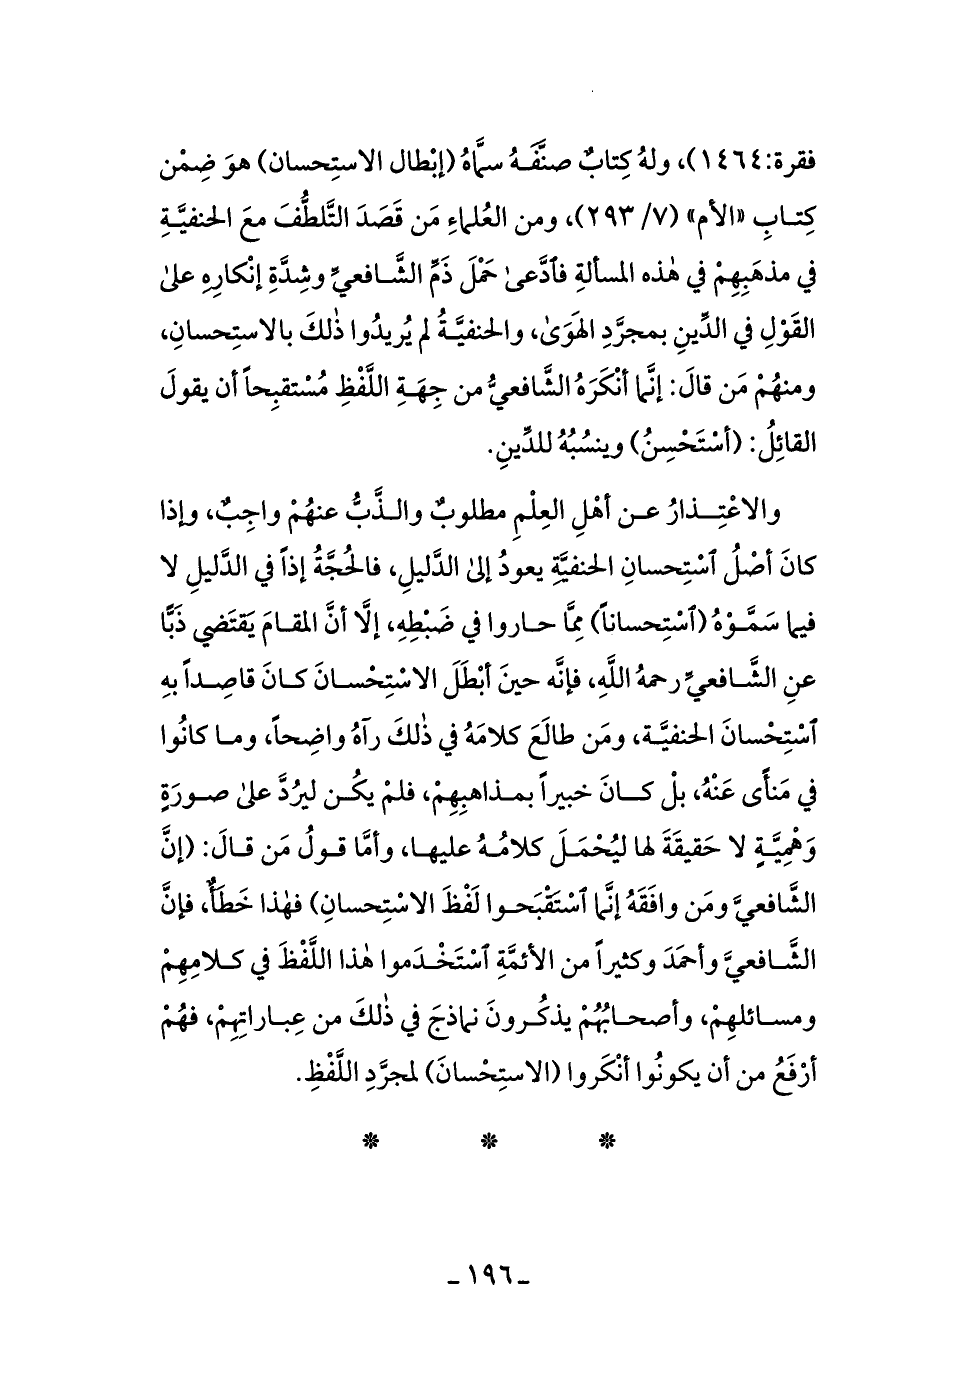 فقرة:١٤٦٤)، ولهُ كِتابٌ صنَّفَهُ سمَّاهُ (إبْطال الاستِحسان) هوَ ضِمْن
كِتابِ «الأم» (٧/ ٢٩٣)، ومن العُلماءِ مَن قَصَدَ التَّلطُّفَ معَ الحنفيَّةِ
في مذهَبِهِمْ في هٰذه المسألةِ فٱدَّعىٰ حَمْلَ ذَمِّ الشَّافعيِّ وشِدَّةِ إنْكارِهِ علىٰ
القَوْلِ في الدِّينِ بمجرَّدِ الهَوَىٰ، والحنفيَّةُ لم يُريدُوا ذٰلكَ بالاستِحسانِ،
ومنهُمْ مَن قالَ: إنَّما أنْكَرَهُ الشَّافعيُّ من جِهَةِ اللَّفْظِ مُسْتقبِحاً أن يقولَ
القائِلُ: (أسْتَحْسِنُ) وينسُبُهُ للدِّينِ.
والاعْتِذارُ عن أهْلِ العِلْمِ مطلوبٌ والذَّبُّ عنهُمْ واجِبٌ، وإذا
كانَ أصْلُ ٱسْتِحسانِ الحنفيَّةِ يعودُ إلىٰ الدَّليلِ، فالحُجَّةُ إذاً في الدَّليلِ لا
فيما سَمَّوْهُ (ٱسْتِحساناً) مِمَّا حاروا في ضَبْطِهِ، إلَّا أنَّ المقامَ يَقتَضي ذَبًّا
عنِ الشَّافعيِّ رحمهُ اللَّهِ، فإنَّه حينَ أبْطَلَ الاسْتِحْسانَ كانَ قاصِداً بهِ
ٱسْتِحْسانَ الحنفيَّة، ومَن طالَعَ كلامَهُ في ذٰلكَ رآهُ واضِحاً، وما كانُوا
في مَنأًى عَنْهُ، بلْ كانَ خبيراً بمذاهبِهِمْ، فلمْ يكُن ليرُدَّ علىٰ صورَةٍ
وَهْمِيَّةٍ لا حَقيقَةَ لها ليُحْمَلَ كلامُهُ عليها، وأمَّا قولُ مَن قالَ: (إنَّ
الشَّافعيَّ ومَن وافَقَهُ إنَّما ٱسْتَقْبَحوا لَفْظَ الاسْتِحسانِ) فهٰذا خَطَأٌ، فإنَّ
الشَّافعيَّ وأحمَدَ وكثيراً من الأئمَّةِ ٱسْتَخْدَموا هٰذا اللَّفْظَ في كلامِهِمْ
ومسائلهِمْ، وأصحابُهُمْ يذكُرونَ نماذجَ في ذٰلكَ من عِباراتِهِمْ، فهُمْ
أرْفَعُ من أن يكونُوا أنْكَروا (الاستِحْسانَ) لمجرَّدِ اللَّفْظِ.
* * *
ـ ١٩٦ ـ